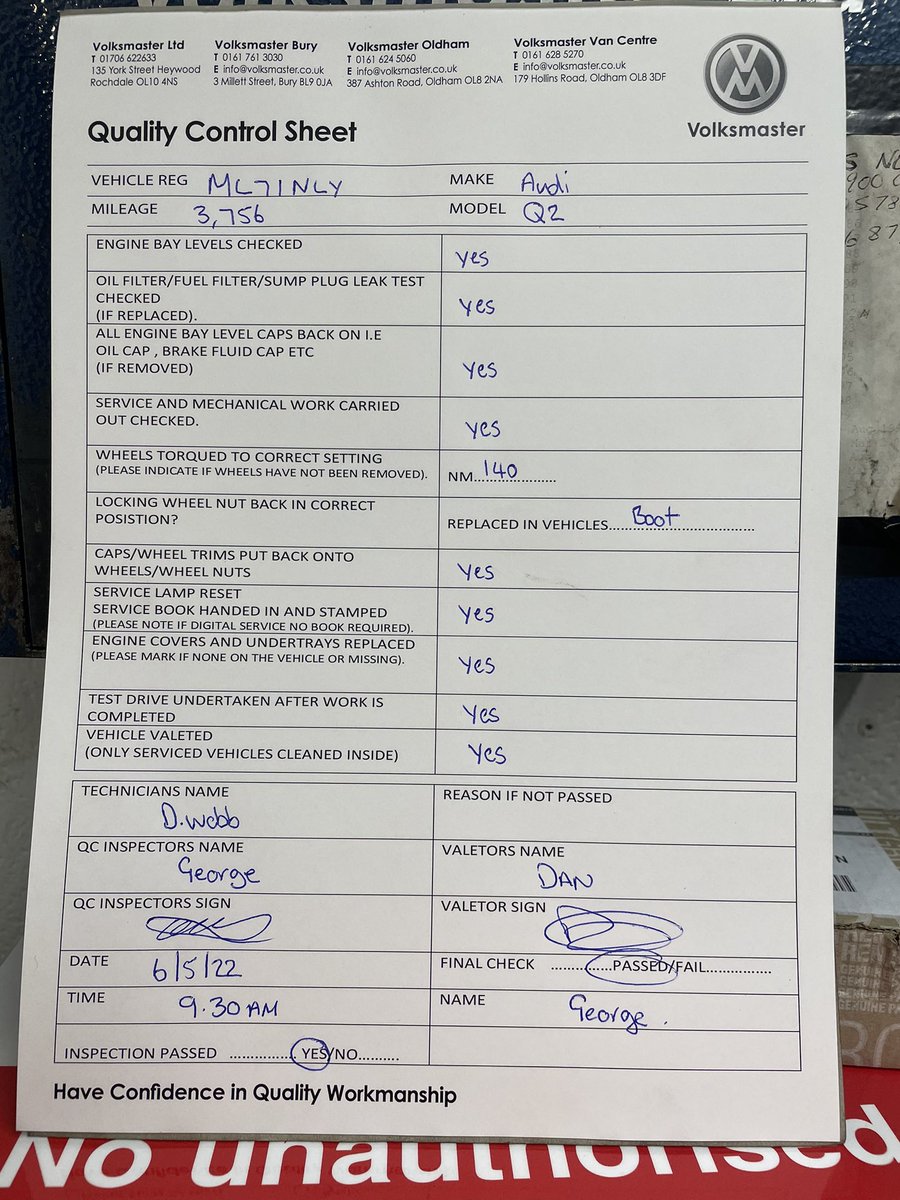 Volksmaster Ltd
T 01706 622633
135 York Street Heywood
Rochdale OL10 4NS
Volksmaster Bury
T 0161 761 3030
E info@volksmaster.co.uk
3 Millett Street, Bury BL9 0JA
Volksmaster Oldham
T 0161 624 5060
E info@volksmaster.co.uk
387 Ashton Road, Oldham OL8 2NA
Volksmaster Van Centre
T 0161 628 5270
E info@volksmaster.co.uk
179 Hollins Road, Oldham OL8 3DF
Volksmaster
Quality Control Sheet
VEHICLE REG ML71NLY MAKE Audi
MILEAGE 3,756 MODEL Q2
ENGINE BAY LEVELS CHECKED yes
OIL FILTER/FUEL FILTER/SUMP PLUG LEAK TEST
CHECKED yes
(IF REPLACED).
ALL ENGINE BAY LEVEL CAPS BACK ON I.E
OIL CAP , BRAKE FLUID CAP ETC
(IF REMOVED) yes
SERVICE AND MECHANICAL WORK CARRIED
OUT CHECKED. yes
WHEELS TORQUED TO CORRECT SETTING
(PLEASE INDICATE IF WHEELS HAVE NOT BEEN REMOVED). NM...140..................
LOCKING WHEEL NUT BACK IN CORRECT
POSISTION? REPLACED IN VEHICLES......Boot..............................
CAPS/WHEEL TRIMS PUT BACK ONTO
WHEELS/WHEEL NUTS yes
SERVICE LAMP RESET
SERVICE BOOK HANDED IN AND STAMPED yes
(PLEASE NOTE IF DIGITAL SERVICE NO BOOK REQUIRED).
ENGINE COVERS AND UNDERTRAYS REPLACED
(PLEASE MARK IF NONE ON THE VEHICLE OR MISSING). yes
TEST DRIVE UNDERTAKEN AFTER WORK IS
COMPLETED yes
VEHICLE VALETED
(ONLY SERVICED VEHICLES CLEANED INSIDE) yes
TECHNICIANS NAME REASON IF NOT PASSED
D.Webb
QC INSPECTORS NAME VALETORS NAME
George DAN
QC INSPECTORS SIGN VALETOR SIGN
DATE 6/5/22 FINAL CHECK ...............PASSED/FAIL................
TIME 9.30 AM NAME George.
INSPECTION PASSED ................YES/NO..........
Have Confidence in Quality Workmanship
No unauthorised